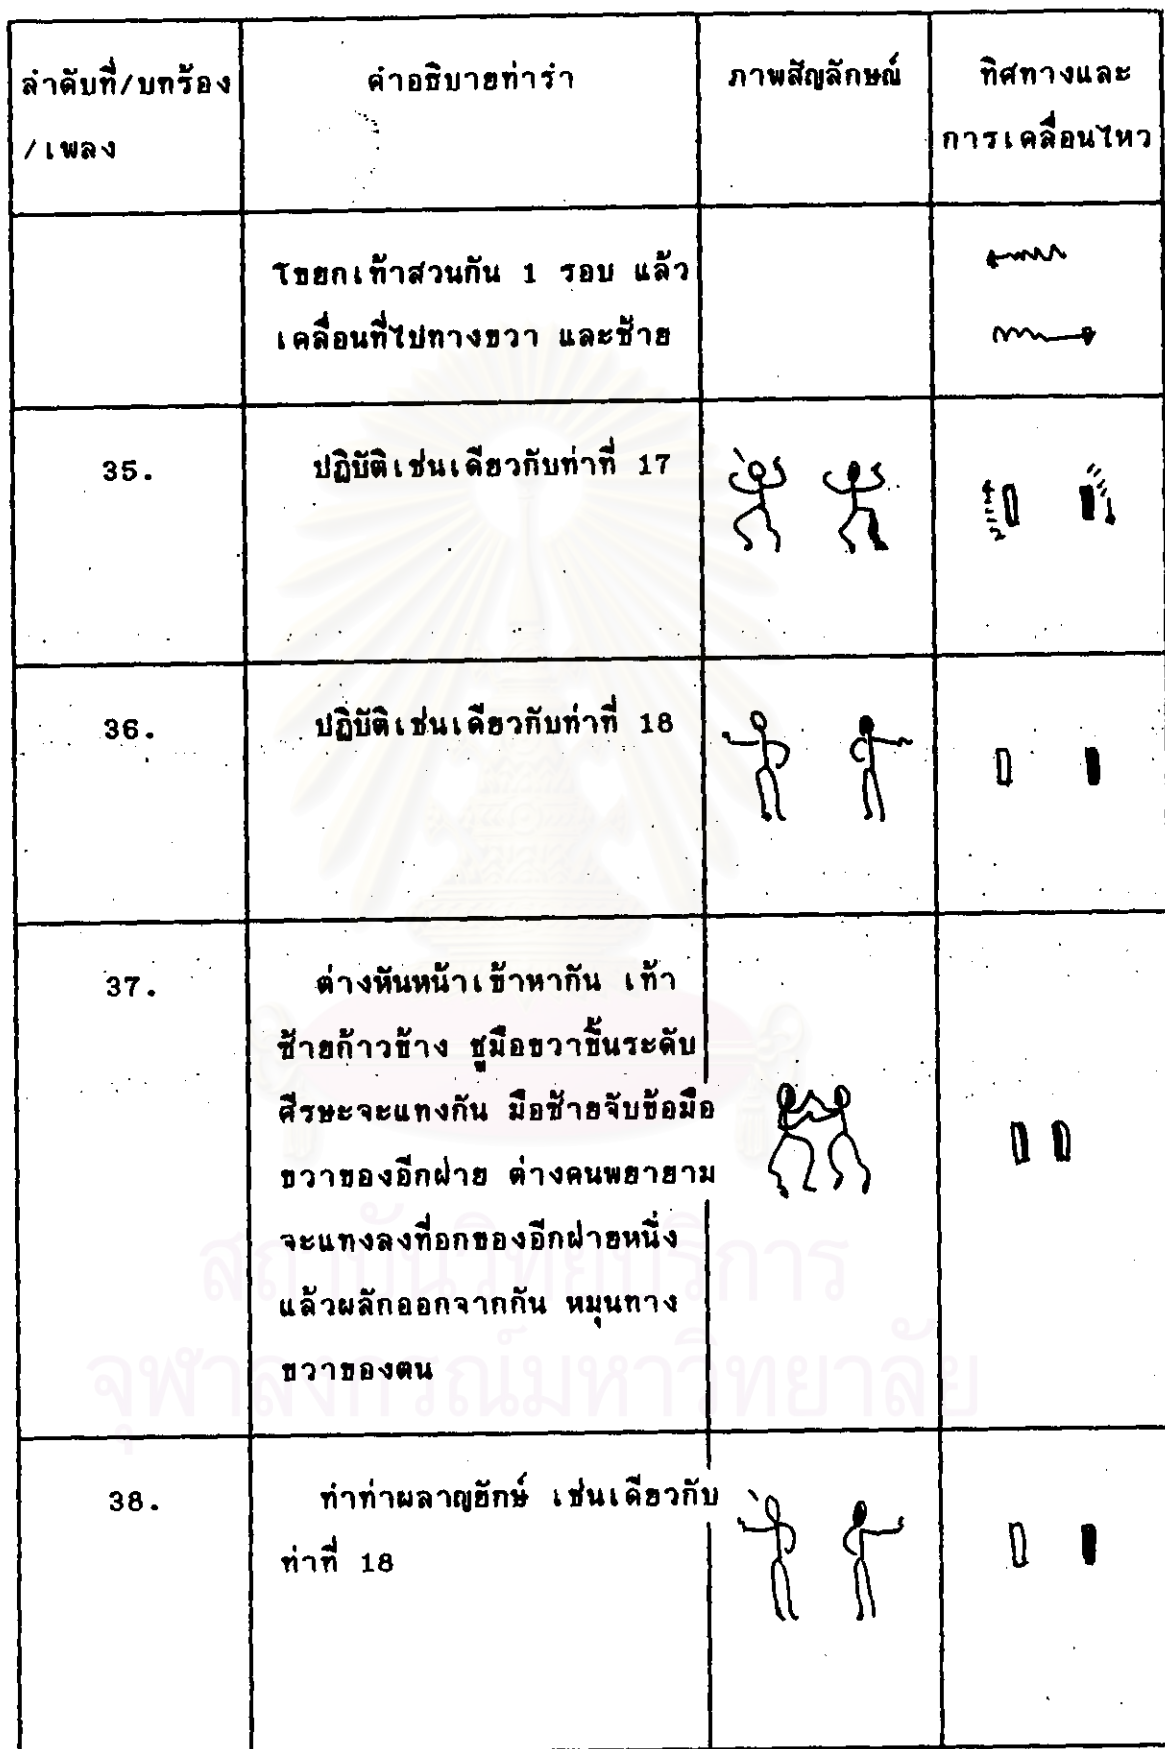 ลำดับที่/บทร้อง
/เพลง
คำอธิบายท่ารำ
ภาพสัญลักษณ์
ทิศทางและ
การเคลื่อนไหว
โขยกเท้าสวนกัน 1 รอบ แล้ว
เคลื่อนที่ไปทางขวา และซ้าย
35.
ปฏิบัติเช่นเดียวกับท่าที่ 17
36.
ปฏิบัติเช่นเดียวกับท่าที่ 18
37.
ต่างหันหน้าเข้าหากัน เท้า
ซ้ายก้าวข้าง ชูมือขวาขึ้นระดับ
ศีรษะจะแทงกัน มือซ้ายจับข้อมือ
ขวาของอีกฝ่าย ต่างคนพยายาม
จะแทงลงที่อกของอีกฝ่ายหนึ่ง
แล้วผลักออกจากกัน หมุนทาง
ขวาของตน
38.
ทำท่าผลาญยักษ์ เช่นเดียวกับ
ท่าที่ 18
สถาบันวิทยบริการ
จุฬาลงกรณ์มหาวิทยาลัย